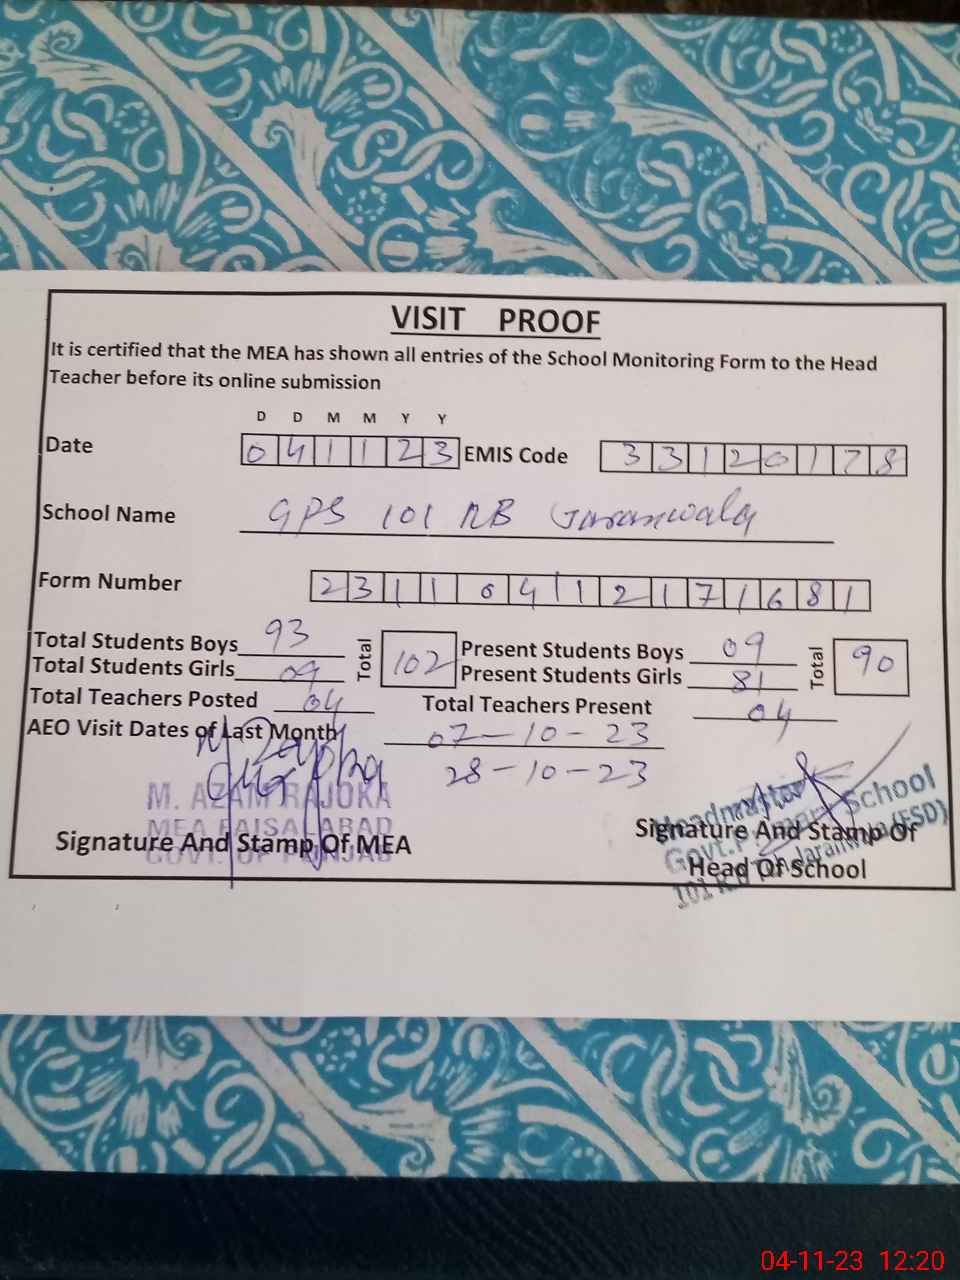 VISIT PROOF
It is certified that the MEA has shown all entries of the School Monitoring Form to the Head
Teacher before its online submission
D D M M Y Y
Date 041123 EMIS Code 33120178
School Name GPS 101 RB Jaranwala
Form Number 23110412171681
Total Students Boys 93 Total 102 Present Students Boys 09 Total 90
Total Students Girls 09 Present Students Girls 81
Total Teachers Posted 04 Total Teachers Present 04
AEO Visit Dates of Last Month 07-10-23
28-10-23
M. AZAM RAJOKA
MEA FAISALABAD
GOVT. OF PUNJAB
Signature And Stamp Of MEA
Headmaster
Govt. Primary School
101 R.B Jaranwala (FSD)
Signature And Stamp Of
Head Of School
04-11-23 12:20